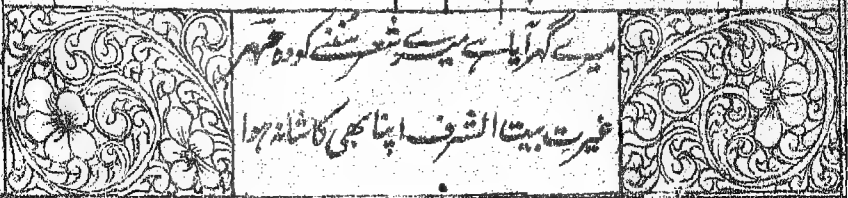 میرے گھر آیا ہے میرے شعر سننے کو وہ مہر
غیرت بیت الشرف اپنا بھی کاشانہ ہوا